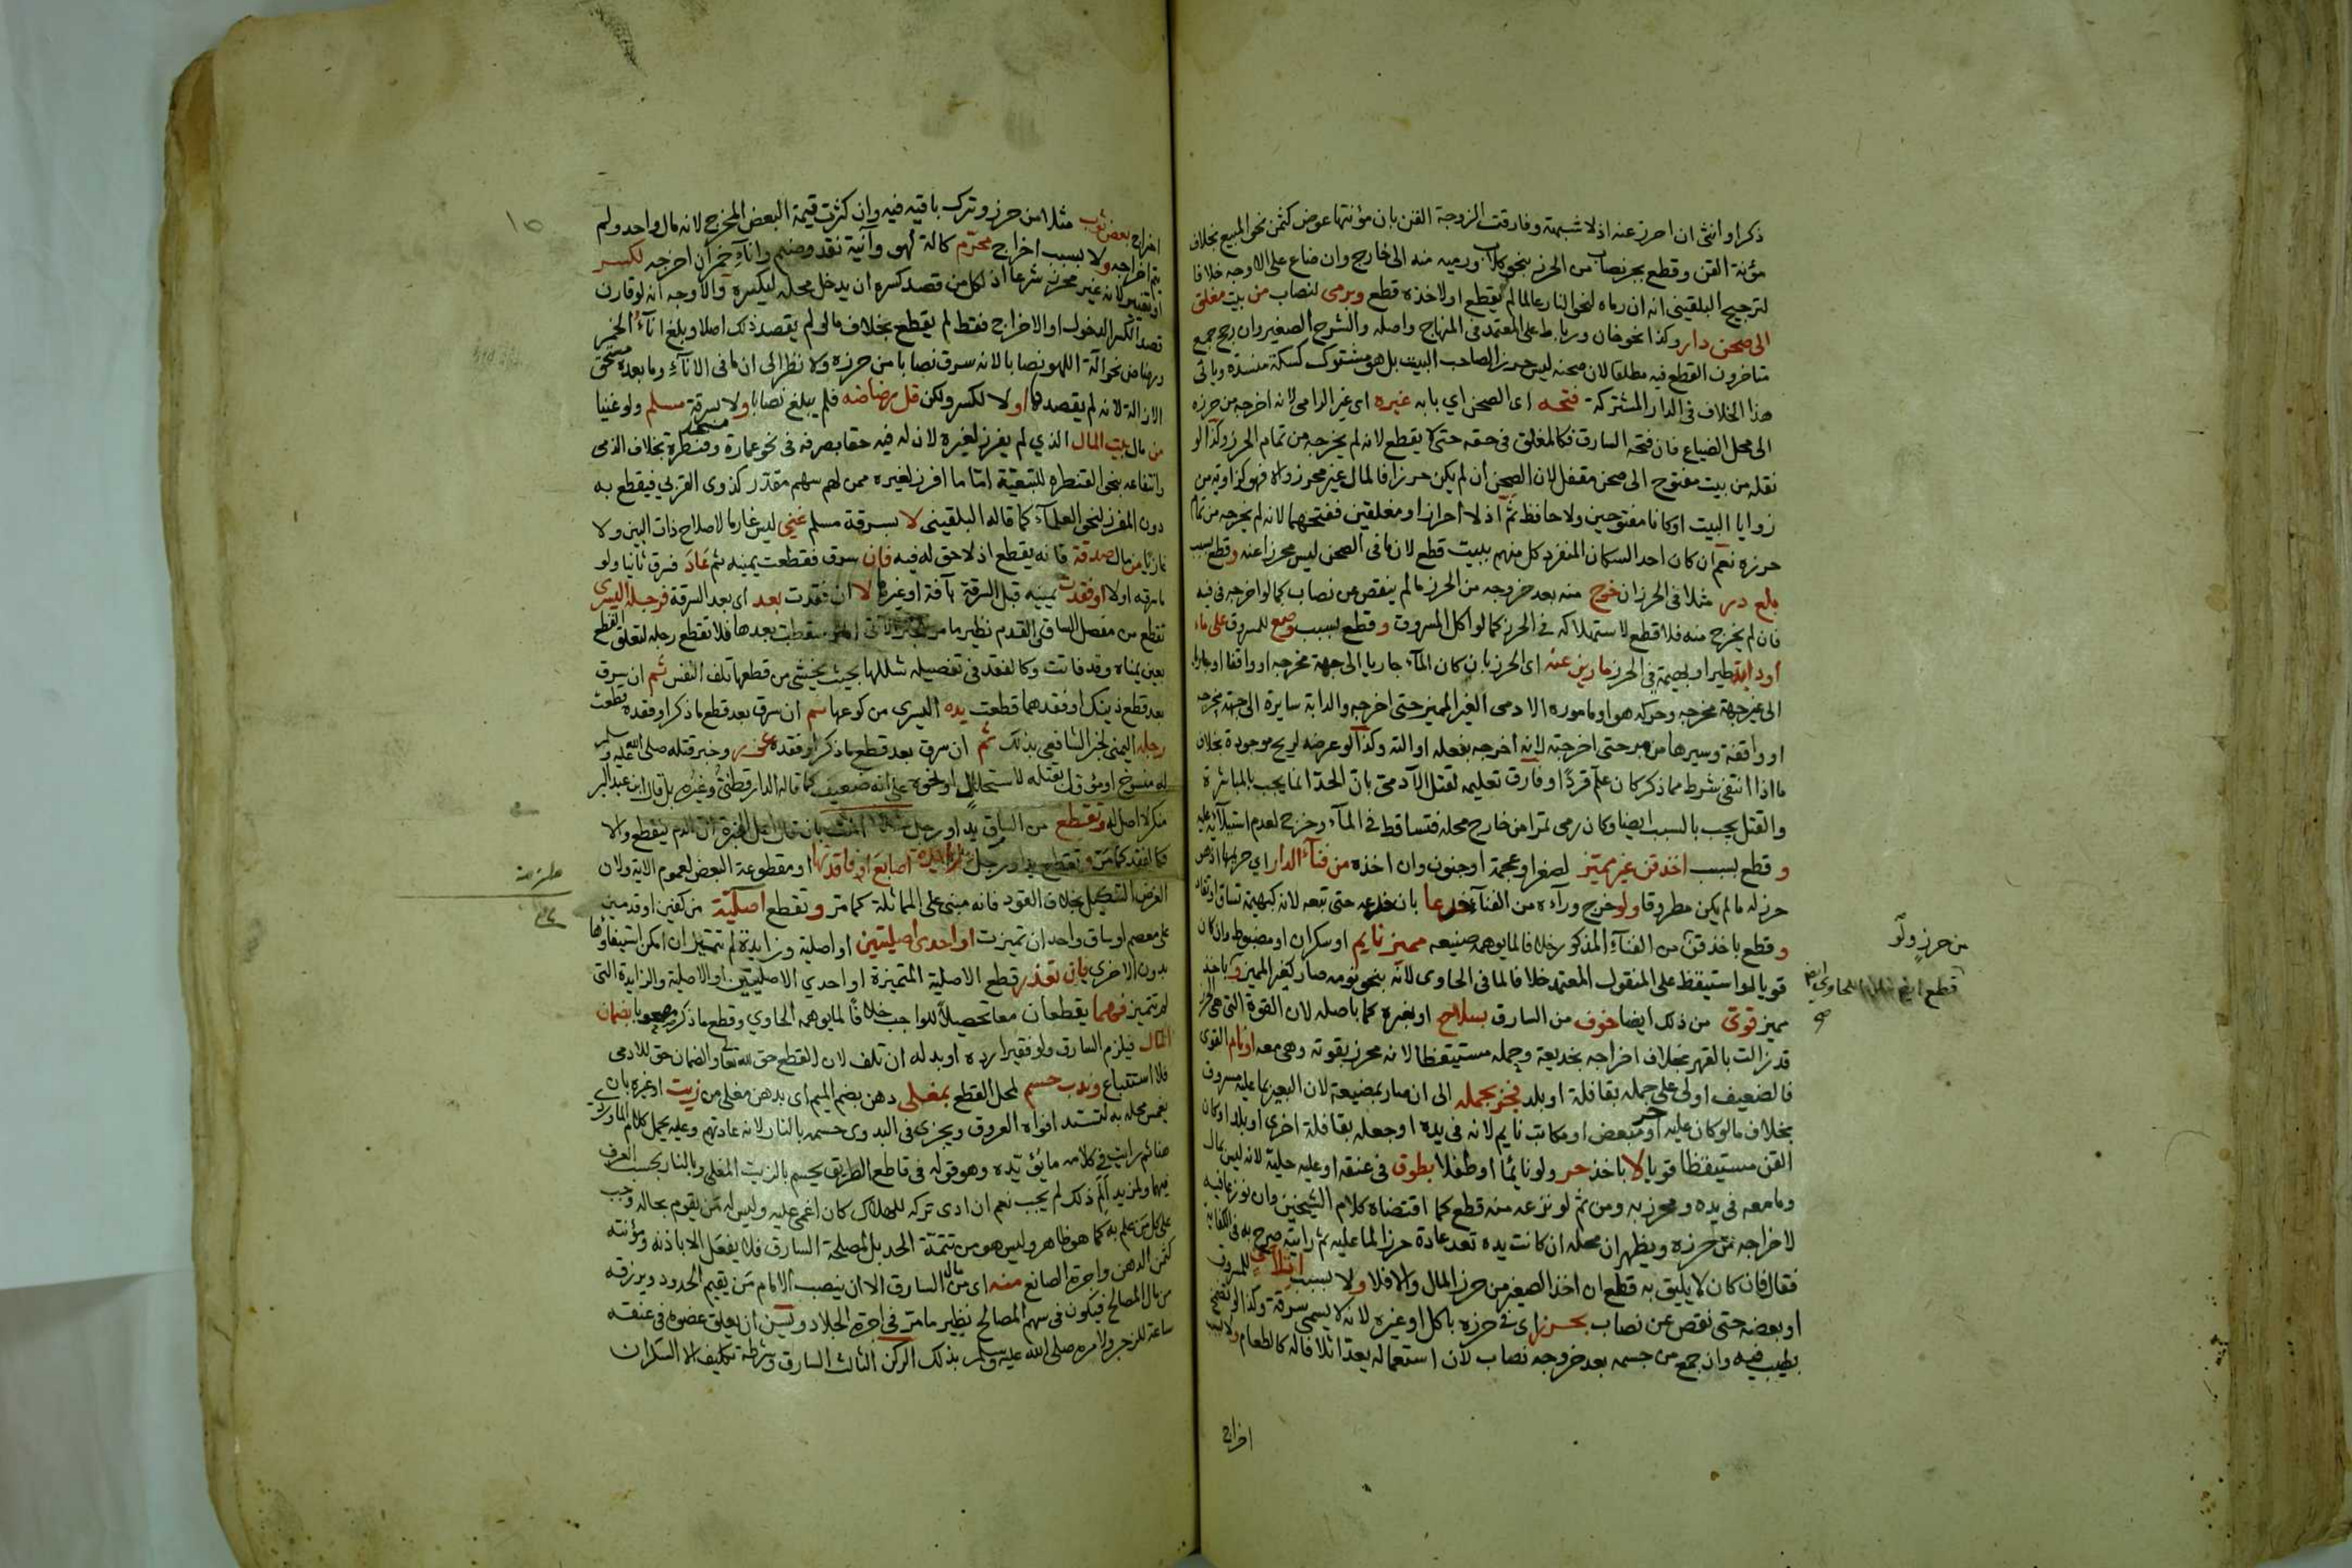 ذكرا او انثى ان احرز عنه اذ لا شبهة وفارقت الزوجة القن بان مؤنتها عوض كثمن نحو المبيع بخلاف
مؤنة القن وقطع بجر نصاب من الحرز بنحو كلاب ورميه منه الى خارج وان ضاع على الاوجه خلافا
لترجيح البلقيني انه ان رماه لنحو النار عالما لم يقطع اولا خذه قطع وبرمى لنصاب من بيت مغلق
الى صحن دار وكذا نحو خان ورباط على المعتمد في المنهاج واصله والشرح الصغير وان رجح جمع
متاخرون القطع فيه مطلقا لان صحنه ليس حرزا لصاحب البيت بل هو مشترك كسكة منسدة وياتي
هذا الخلاف في الدار المشتركة فتحه اى الصحن اي بابه غيره اى غير الرامى لانه اخرجه من حرزه
الى محل الضياع فان فتحه السارق فكالمغلق في حقه حتى لا يقطع لانه لم يخرجه من تمام الحرز وكذا لو
نقله من بيت مفتوح الى صحن مقفل لان الصحن ان لم يكن حرزا فالمال غير محرز والا فهو كزاوية من
زوايا البيت او كانا مفتوحين ولا حافظ ثم اذ لا احراز او مغلقين ففتحهما لانه لم يخرجه من تمام
حرزه نعم ان كان احد السكان المنفرد كل منهم ببيت قطع لان ما فى الصحن ليس محرزا عنه وقطع بسبب
بلع در مثلا فى الحرز ان خرج منه بعد خروجه من الحرز ما لم ينقص عن نصاب كما لو اخرجه فى فيه
فان لم يخرج منه فلا قطع لاستهلاكه في الحرز كما لو اكل المسروق وقطع بسبب وضع للمسروق على ماء
او دابة طير او بهيمة في الحرز ماريين عنه اى الحرز بان كان الماء جاريا الى جهة مخرجه او واقفا او جاريا
الى غير جهة مخرجه وحركه هو او ماموره الادمى الغير المميز حتى اخرجه والدابة سايرة الى جهة مخرجه
او واقفة وسيرها من حتى اخرجته لانه اخرجه بفعله او الته وكذا لو عرضه لريح موجودة بخلاف
ما اذا انتفى شرط مما ذكر كان علم قردا او فارق تعليمه لقتل الآدمى بان الحد انما يجب بالمباشرة
والقتل يجب بالسبب ايضا وكان رمى تمرا من خارج محله فتساقط في الماء وخرج لعدم استيلائه عليه
وقطع بسبب اخذ قن غير مميز لصغر او عجمة او جنون وان اخذه من فناء الدار اي حريمها اذ هى
حرز له ما لم يكن مطروقا ولو خرج وراءه من الفناء خدعا بان خدعه حتى تبعه لانه كبهيمة تساق او تقاد
وقطع باخذ قن من الفناء المذكور خلافا لما يوهمه صنيعه مميز نايم او سكران او مضبوط وان كان
قويا لو استيقظ على المنقول المعتمد خلافا لما في الحاوى لانه بنحو نومه صار كغير المميز وباخذ
مميز قوى من ذلك ايضا خوف من السارق بسلاح او بغيره كما باصله لان القوة التى هى الحرز
قد زالت بالقهر بخلاف اخراجه بخديعة وحمله مستيقظا لانه محرز بقوته وهى معه او نام القوى
فالضعيف اولى على جمله بقافلة او بلد فجز بجمله الى ان صار بمضيعة لان البعير بما عليه مسروق
بخلاف ما لو كان عليه حر او مبعض او مكاتب نايم لانه فى يده او جعله بقافلة اخرى او بلد او كان
القن مستيقظا قويا لا باخذ حر ولو نايما او طفلا بطوق فى عنقه او عليه حلية لانه ليس بمال
وما معه فى يده ومحرز به ومن ثم لو نزعه منه قطع كما اقتضاه كلام الشيخين وان نوزعا فيه
لاخراجه من حرزه ويظهر ان محله ان كانت يده تعد عادة حرزا لما عليه ثم رايته صرح به في الكفاية
فقال فان كان لا يليق به قطع ان اخذ الصغير من حرز المال والا فلا ولا بسبب اتلاف للمسروق
او بعضه حتى نقص عن نصاب بحرز اى في حرزه باكل او غيره لانه لا يسمى سرقة وكذا لو تضمخ
بطيب فيه وان جمع من جسمه بعد خروجه نصاب لان استعماله يعد اتلافا له كالطعام ولا بسبب
اخراج
من حرز ولو
قطع
صح
اخراج بعض ثوب مثلا من حرز وترك باقيه فيه وان كثرت قيمة البعض المخرج لانه مال واحد ولم
يتم اخراجه ولا بسبب اخراج محترم كآلة لهو وآنية نقد وصنم واناء خمر ان اخرجه لكسر
او تغيير لانه غير محرز شرعا اذ لكل من قصد كسره ان يدخل محله ليكسره والاوجه انه لو قارن
قصد الكسر الدخول او الاخراج فقط لم يقطع بخلاف ما لو لم يقصد ذلك اصلا وبلغ اناء الخمر
ورضاض نحو آلة اللهو نصابا لانه سرق نصابا من حرزه ولا نظر الى ان ما فى الاناء وما بعده مستحق
الازالة لانه لم يقصدها اولا لكسر ولكن قل رضاضه فلم يبلغ نصابا ولا بسرقة مسلم ولو غنيا
من مال بيت المال الذي لم يفرز لغيره لان له فيه حقا بصرفه فى نحو عمارة مسجد وقنطرة بخلاف الذمى
وانتفاعه بنحو القنطرة للتبعية اما ما افرز لغيره ممن لهم سهم مقدر كذوى القربى فيقطع به
دون المفرز لنحو العلماء كما قاله البلقيني لا بسرقة مسلم غنى ليس غارما لاصلاح ذات البين ولا
غازيا من مال صدقة فانه يقطع اذ لا حق له فيه فان سرق فقطعت يمينه ثم عاد فسرق ثانيا ولو
ما سرقه اولا او فقدت يمينه قبل السرقة بآفة او غيرها لا ان فقدت بعد اى بعد السرقة فرجله اليسرى
تقطع من مفصل الساق والقدم نظير ما مر سقطت بعدها فلا تقطع رجله لتعلق القطع
بعين يمناه وقد فاتت وكالفقد فى تفصيله شللها بحيث يخشى من قطعها تلف النفس ثم ان سرق
بعد قطع ذينك او فقدهما قطعت يده اليسرى من كوعها ثم ان سرق بعد قطع ما ذكر او فقده قطعت
رجله اليمنى لخبر الشافعي بذلك ثم ان سرق بعد قطع ما ذكر او فقده عزر وخبر قتله صلى الله عليه وسلم
له منسوخ او مؤول بقتله لاستحلال او نحوه على انه ضعيف كما قاله الدارقطنى وغيره بل قال ابن عبد البر
منكر لا اصل له وتقطع من السارق يد او رجل شلا بان قال اهل الخبرة ان الدم ينقطع والا
فكالفقد كما مر وتقطع يد او رجل زايدة اصابع او فاقدتها او مقطوعة البعض لعموم الاية ولان
الغرض التنكيل بخلاف القود فانه مبنى على المماثلة كما مر وتقطع اصلية من كفين او قدمين
على معصم او ساق واحد ان تميزت او احدى اصليتين او اصلية وزايدة لم تتميز ان امكن استيفاؤها
بدون الاخرى فان تعذر قطع الاصلية المتميزة او احدي الاصليتين او الاصلية والزايدة التى
لم تتميز فهما يقطعان معا تحصيلا للواجب خلافا لما يوهمه الحاوي وقطع ما ذكر مصحوبا بضمان
المال فيلزم السارق ولو فقيرا رده او بدله ان تلف لان القطع حق لله تعالى والضمان حق للادمى
فلا استتباع وندب حسم لمحل القطع بمغلى دهن بضم الميم اى بدهن مغلى من زيت او غيره بان
يغمس محله به لتستد افواه العروق ويجزى فى البدوى حسمه بالنار لانه عادتهم وعليه يحمل كلام الماوردى
هنا ثم رايت في كلامه ما يؤيده وهو قوله فى قاطع الطريق يحسم بالزيت المغلى وبالنار بحسب العرف
فيهما ولمزيد الم ذلك لم يجب نعم ان ادى تركه للهلاك كان اغمى عليه وليس له من يقوم بحاله وجب
على كل من علم به كما هو ظاهر وليس هو من تتمة الحد بل لمصلحة السارق فلا يفعل الا باذنه ومؤنته
كثمن الدهن واجرة الصانع منه اى من مال السارق الا ان ينصب الامام من يقيم الحدود ويرزقه
من مال المصالح فيكون فى سهم المصالح نظير ما مر فى اجرة الجلاد ويسن ان يعلق عضوه فى عنقه
ساعة للزجر ولامره صلى الله عليه وسلم بذلك الركن الثالث السارق وشرطه تكليف الا السكران